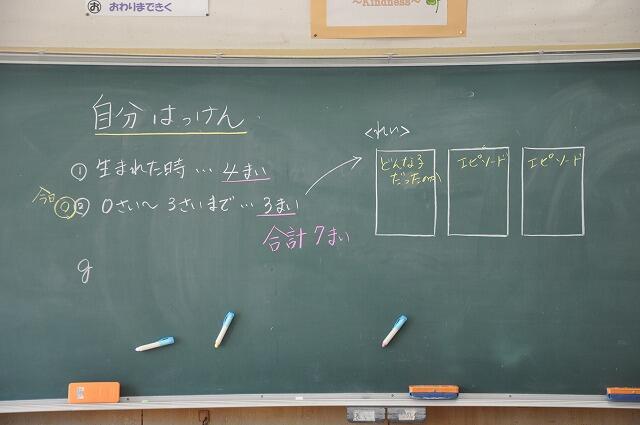 お おわりまできく
~Kindness~
自分はっけん
① 生まれた時…4まい
今日 ② 0さい～3さいまで…3まい
合計7まい
g
<れい>
どんな子
だったのか
エピソード
エピソード